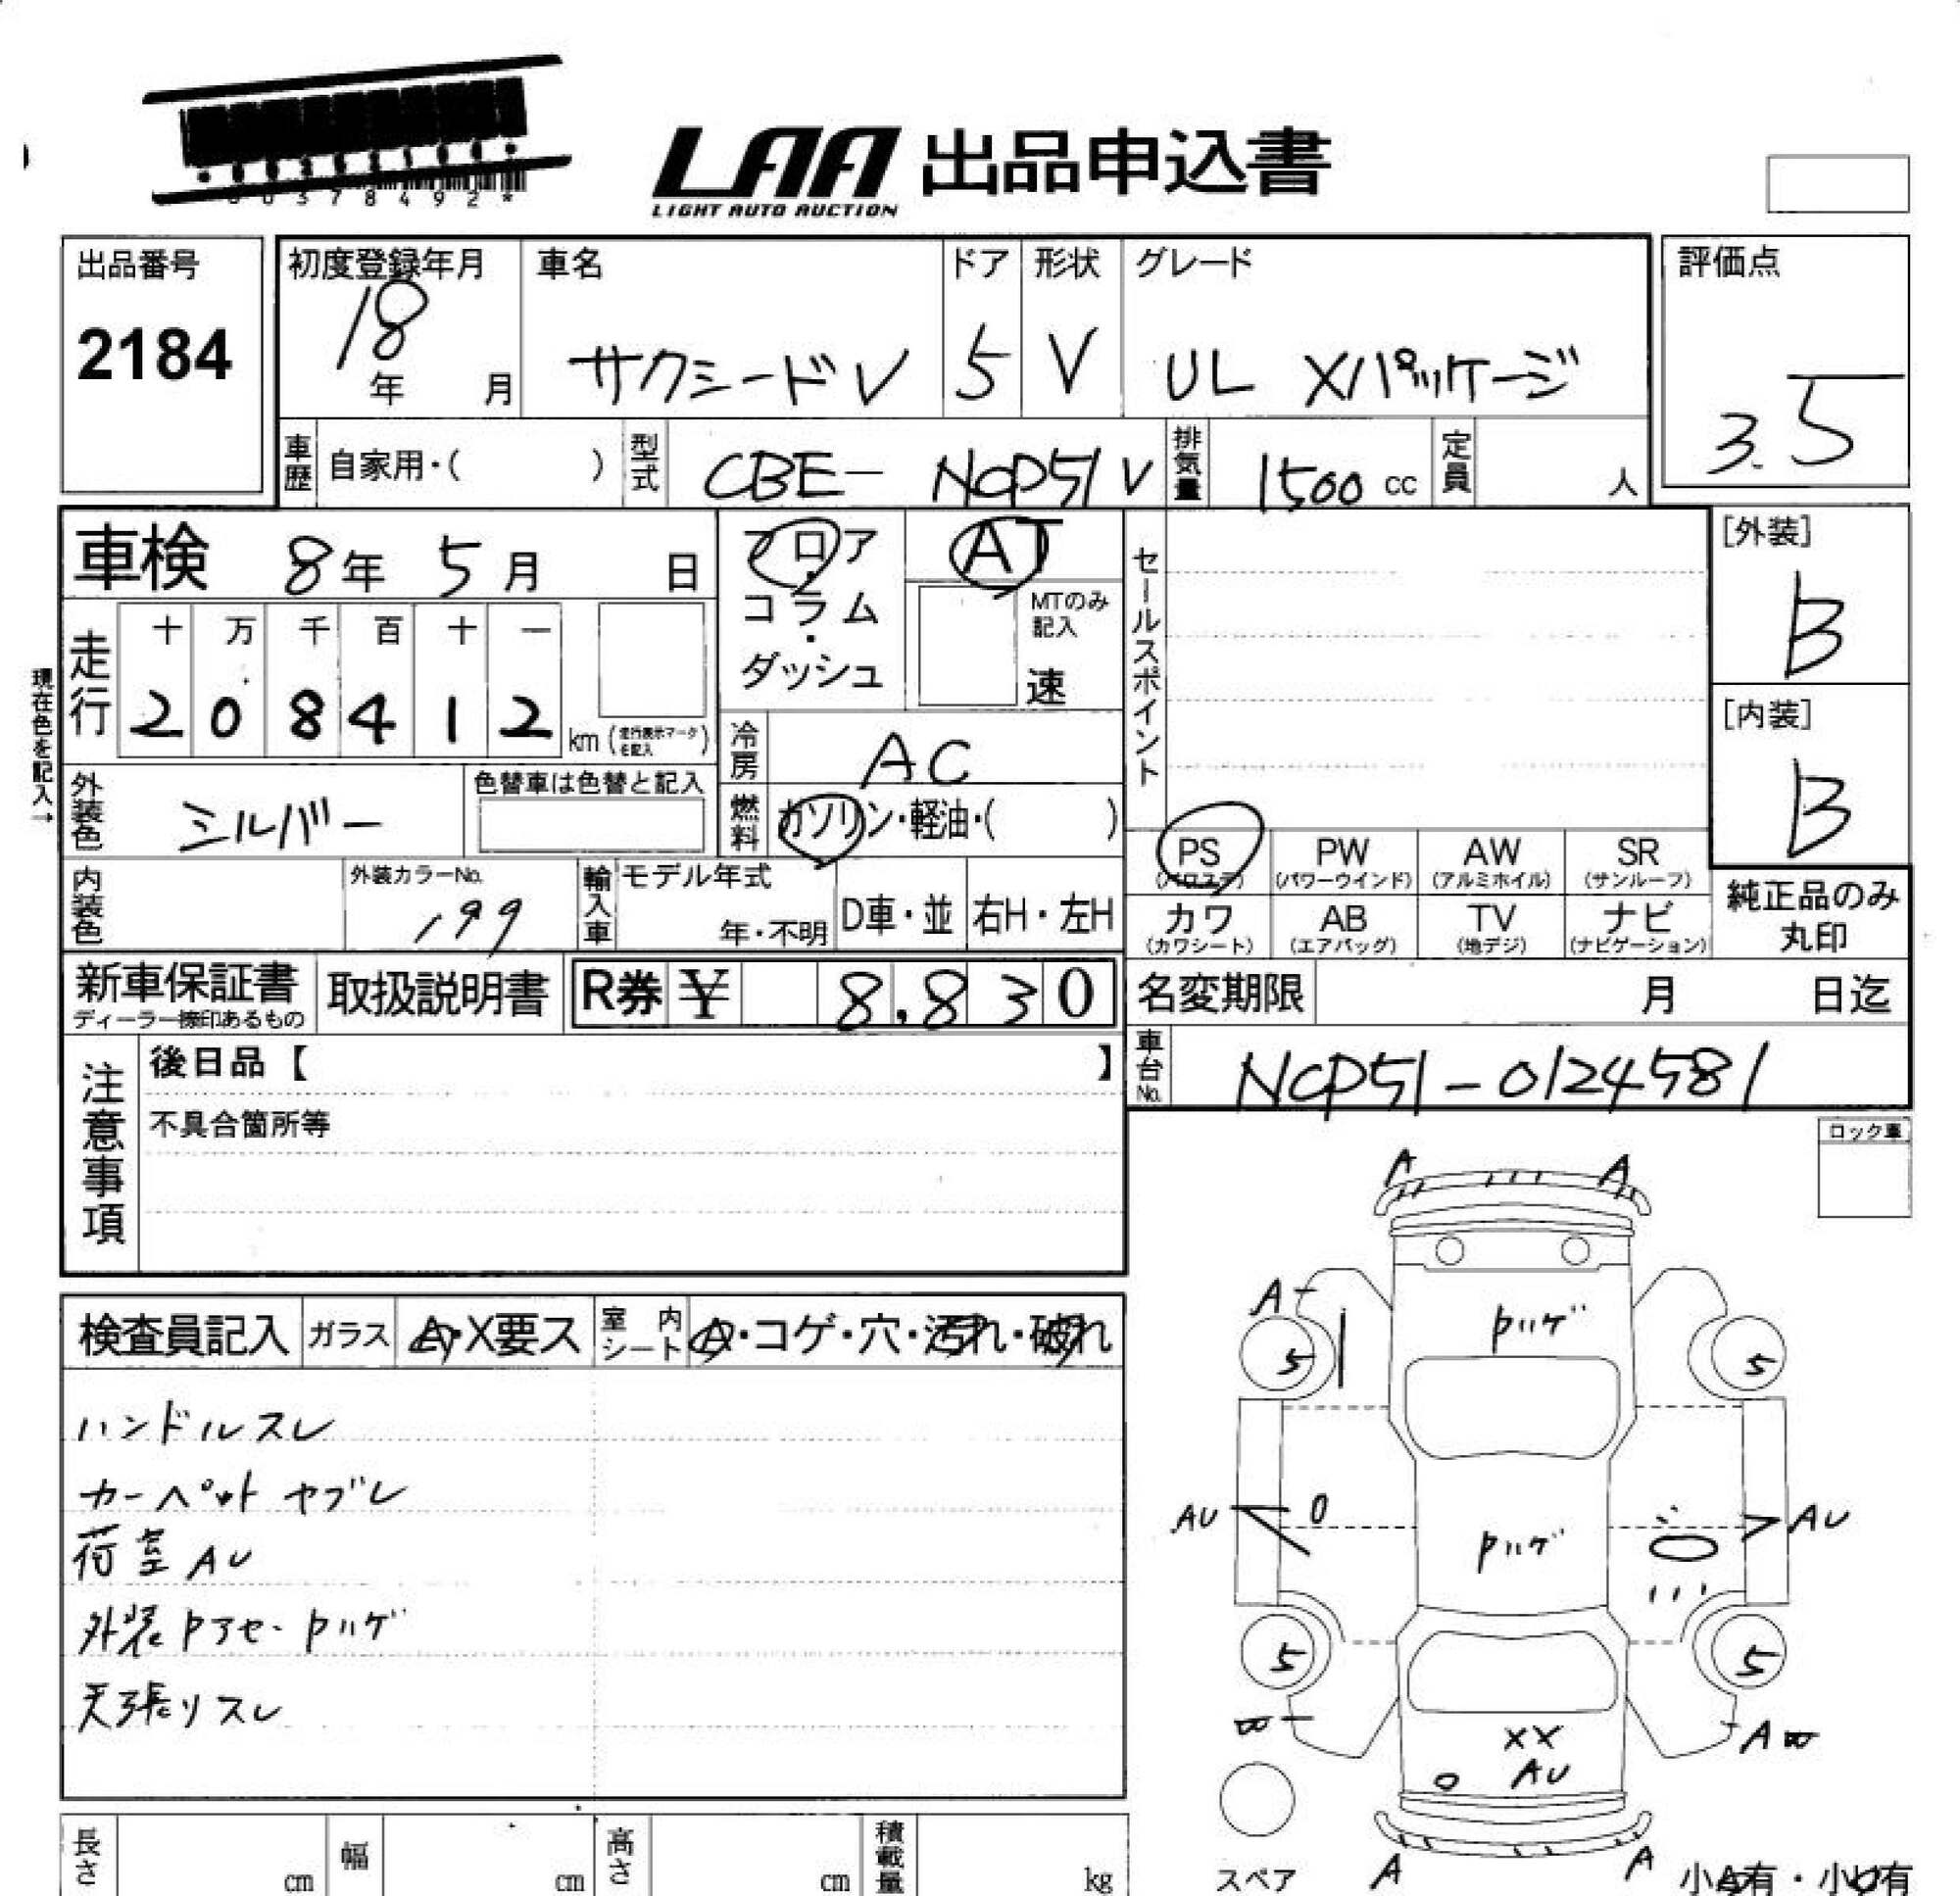 0378492*
LAA 出品申込書
LIGHT AUTO AUCTION
出品番号
2184
初度登録年月
18年 月
車名
サクシードV
ドア
5
形状
V
グレード
UL Xパッケージ
評価点
3.5
車歴 自家用・( )
型式 CBE- NCP51V
排気量 1500 cc
定員 人
車検 8年 5月 日
フロア・コラム・ダッシュ
AT
MTのみ記入
速
セールスポイント
[外装]
B
[内装]
B
現在色を記入→
走行
十 万 千 百 十 一
2 0 8 4 1 2 km (走行表示マークを記入)
冷房 AC
外装色 シルバー
色替車は色替と記入
燃料 ガソリン・軽油・( )
PS (パワステ)
PW (パワーウインド)
AW (アルミホイル)
SR (サンルーフ)
カワ (カワシート)
AB (エアバッグ)
TV (地デジ)
ナビ (ナビゲーション)
純正品のみ丸印
内装色
外装カラーNo. 199
輸入車
モデル年式 年・不明
D車・並
右H・左H
新車保証書
ディーラー捺印あるもの
取扱説明書
R券 ¥ 8,830
名変期限 月 日迄
車台No. NCP51-0124581
注意事項
後日品【 】
不具合箇所等
ロック車
検査員記入
ガラス A・X要ス
室内シート A・コゲ・穴・汚れ・破れ
ハンドルスレ
カーペット ヤブレ
荷室 AU
外装Pアセ・Pハゲ
天張リスレ
A A
A
Pハゲ
5 5
AU AU
Pハゲ
5 5
A
XX
AU
スペア
A A
小A有・小U有
長さ cm
幅 cm
高さ cm
積載量 kg